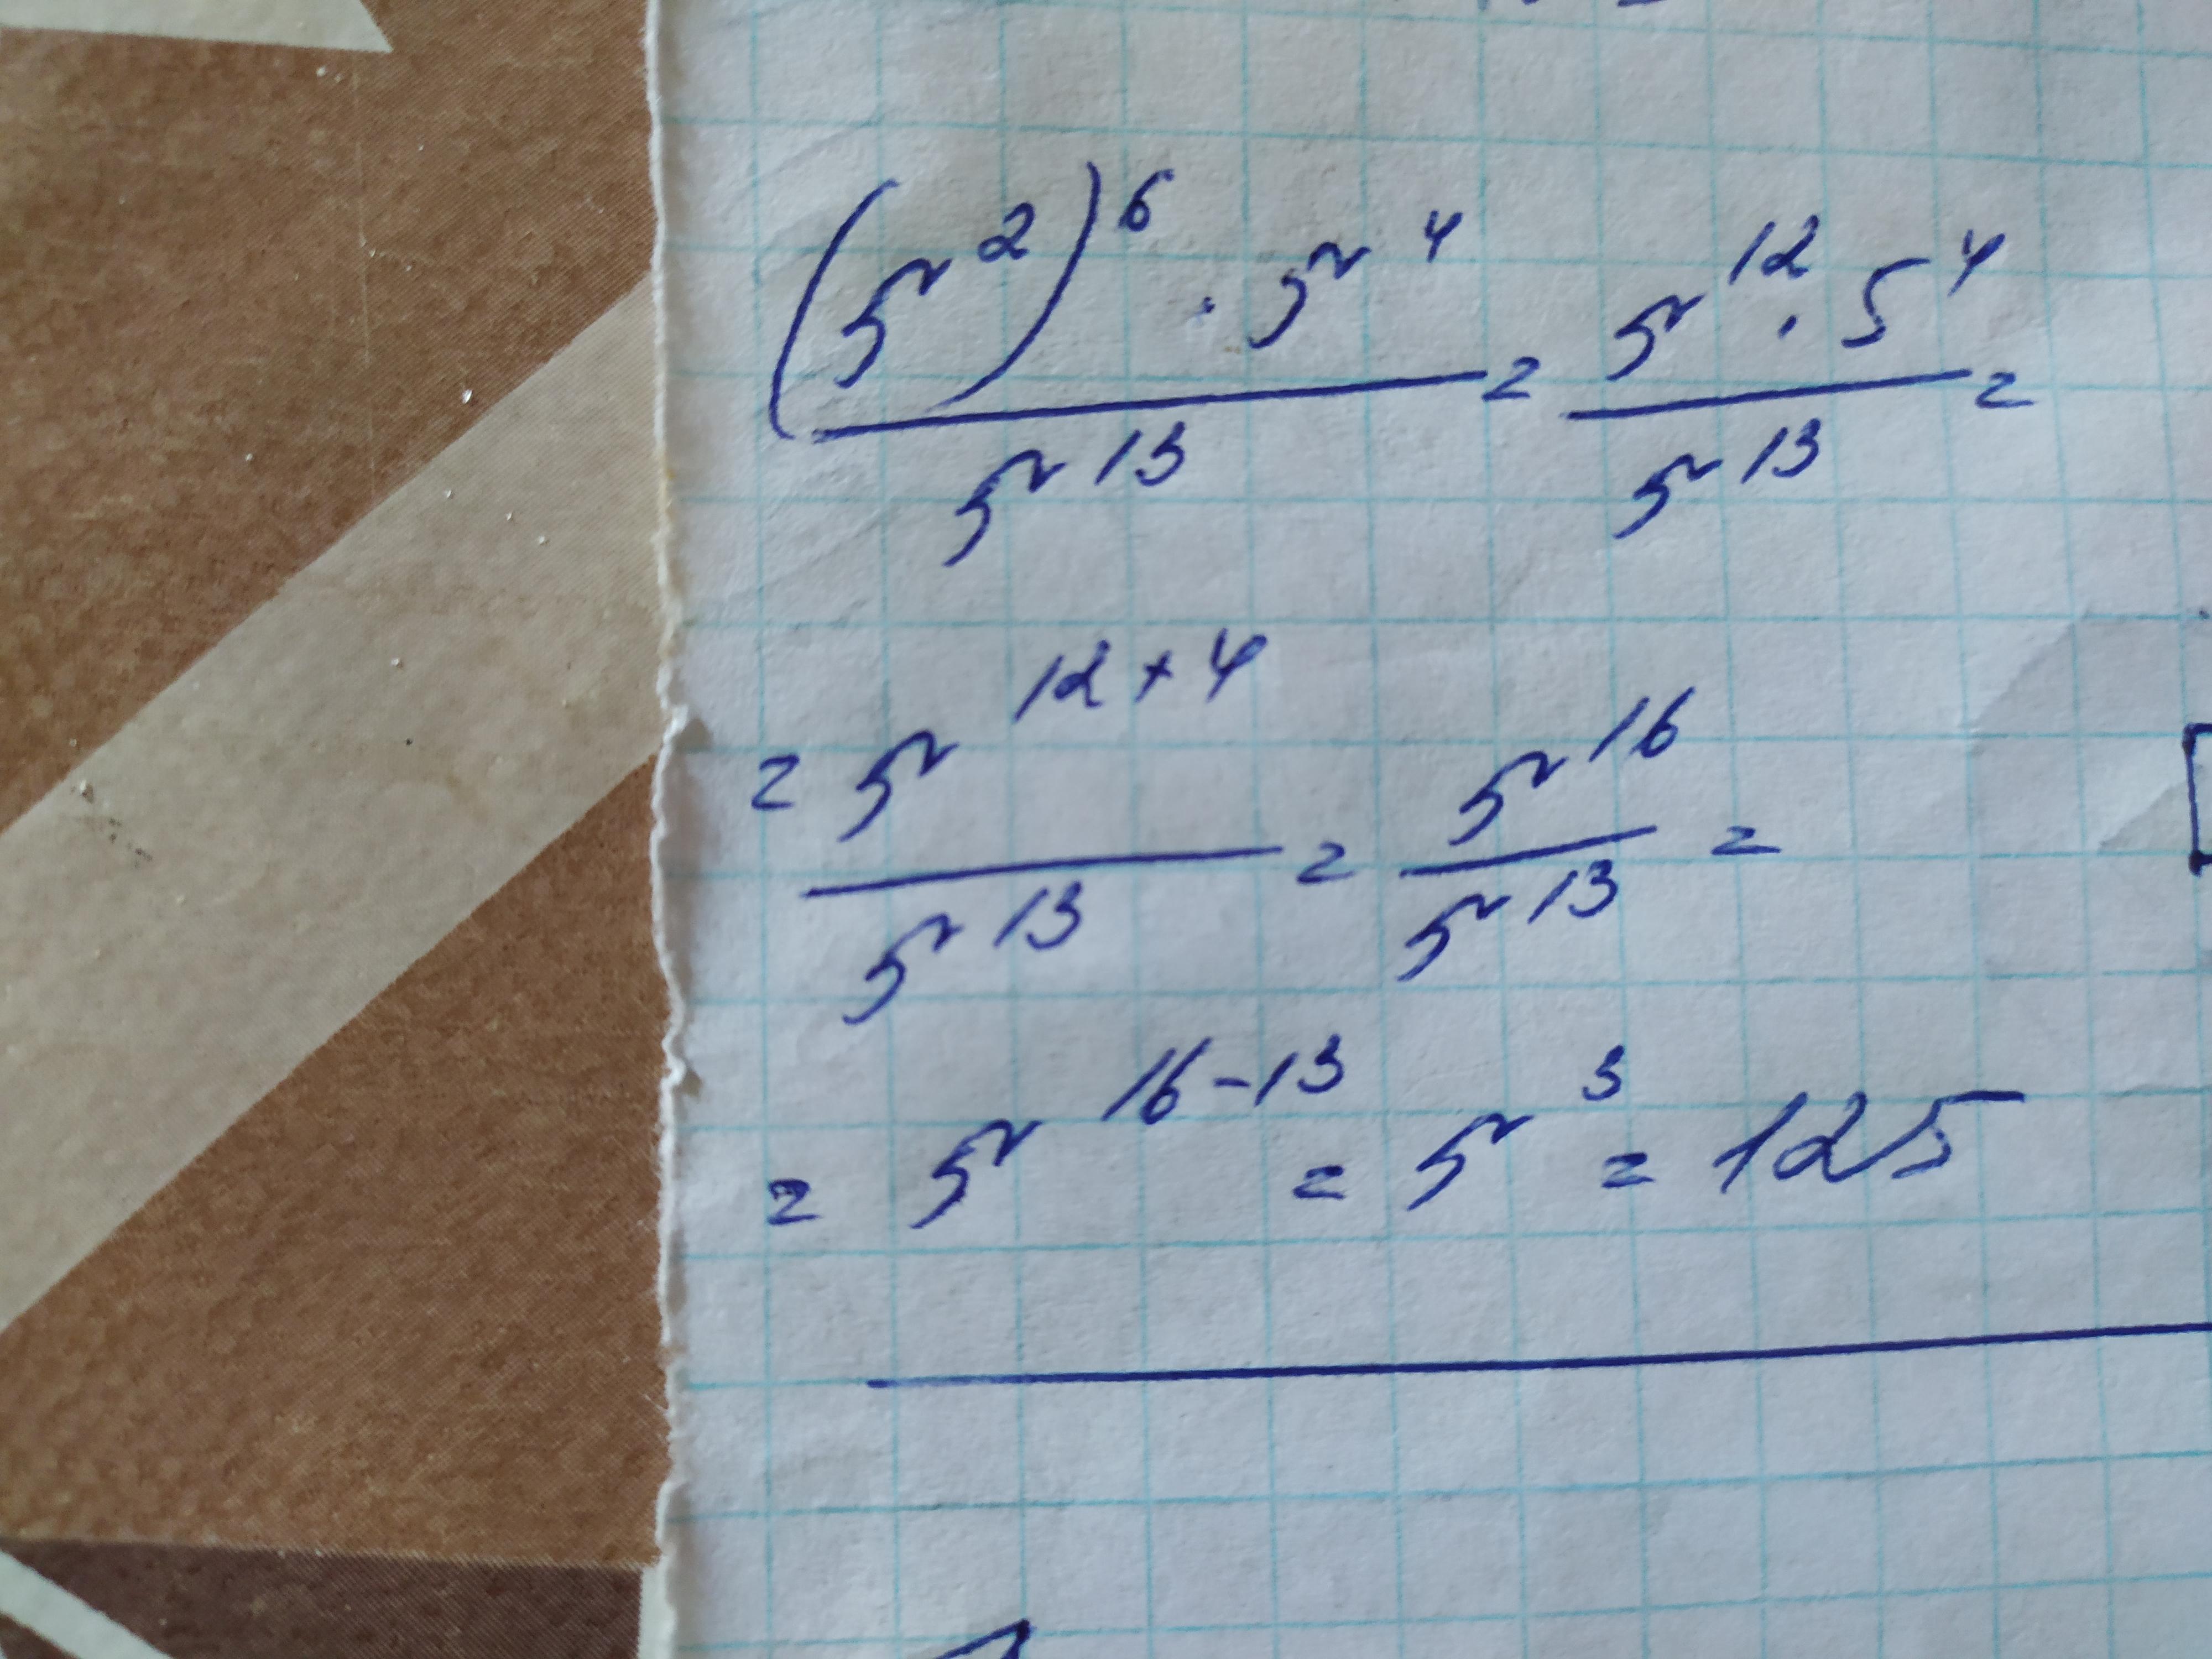 (5²)⁶ · 5⁴ / 5¹³ = 5¹² · 5⁴ / 5¹³ =
= 5¹²⁺⁴ / 5¹³ = 5¹⁶ / 5¹³ =
= 5¹⁶⁻¹³ = 5³ = 125